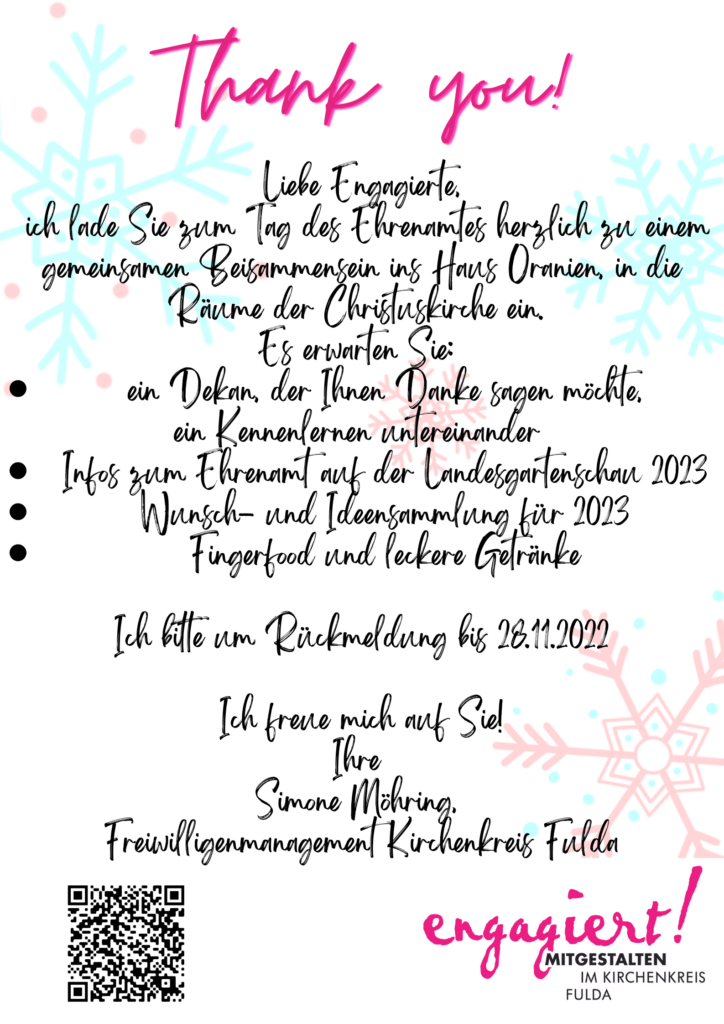 Thank you!
Liebe Engagierte,
ich lade Sie zum Tag des Ehrenamtes herzlich zu einem
gemeinsamen Beisammensein ins Haus Oranien, in die
Räume der Christuskirche ein.
Es erwarten Sie:
• ein Dekan, der Ihnen Danke sagen möchte,
ein Kennenlernen untereinander
• Infos zum Ehrenamt auf der Landesgartenschau 2023
• Wunsch- und Ideensammlung für 2023
• Fingerfood und leckere Getränke
Ich bitte um Rückmeldung bis 28.11.2022
Ich freue mich auf Sie!
Ihre
Simone Möhring,
Freiwilligenmanagement Kirchenkreis Fulda
engagiert!
MITGESTALTEN
IM KIRCHENKREIS
FULDA